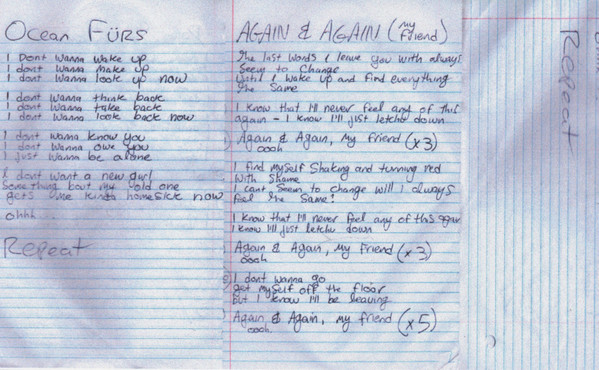 Ocean FÜRS
I Dont Wanna Wake up
I dont Wanna Make up
I dont Wanna look up now
I dont wanna think back
I dont wanna take back
I dont Wanna look back now
I dont wanna know you
I dont Wanna owe you
Just Wanna be alone
I dont want a new girl
Something bout my old one
gets me kinda homesick now
ohhh...
Repeat
AGAIN & AGAIN (my friend)
The last words I leave you with always
Seem to Change
Until I Wake up and find everything
the Same
I know that I'll never feel any of this
again - I know I'll just letcha down
Again & Again, my friend (x3)
oooh
I find myself Shaking and turning red
With Shame
I cant Seem to change will I always
feel the Same!
I know that I'll never feel any of this again
I know I'll just letcha down
Again & Again, my friend (x3)
oooh
I dont wanna go
get myself off the floor
But I know I'll be leaving
Again & Again, my friend (x5)
oooh.
Repeat